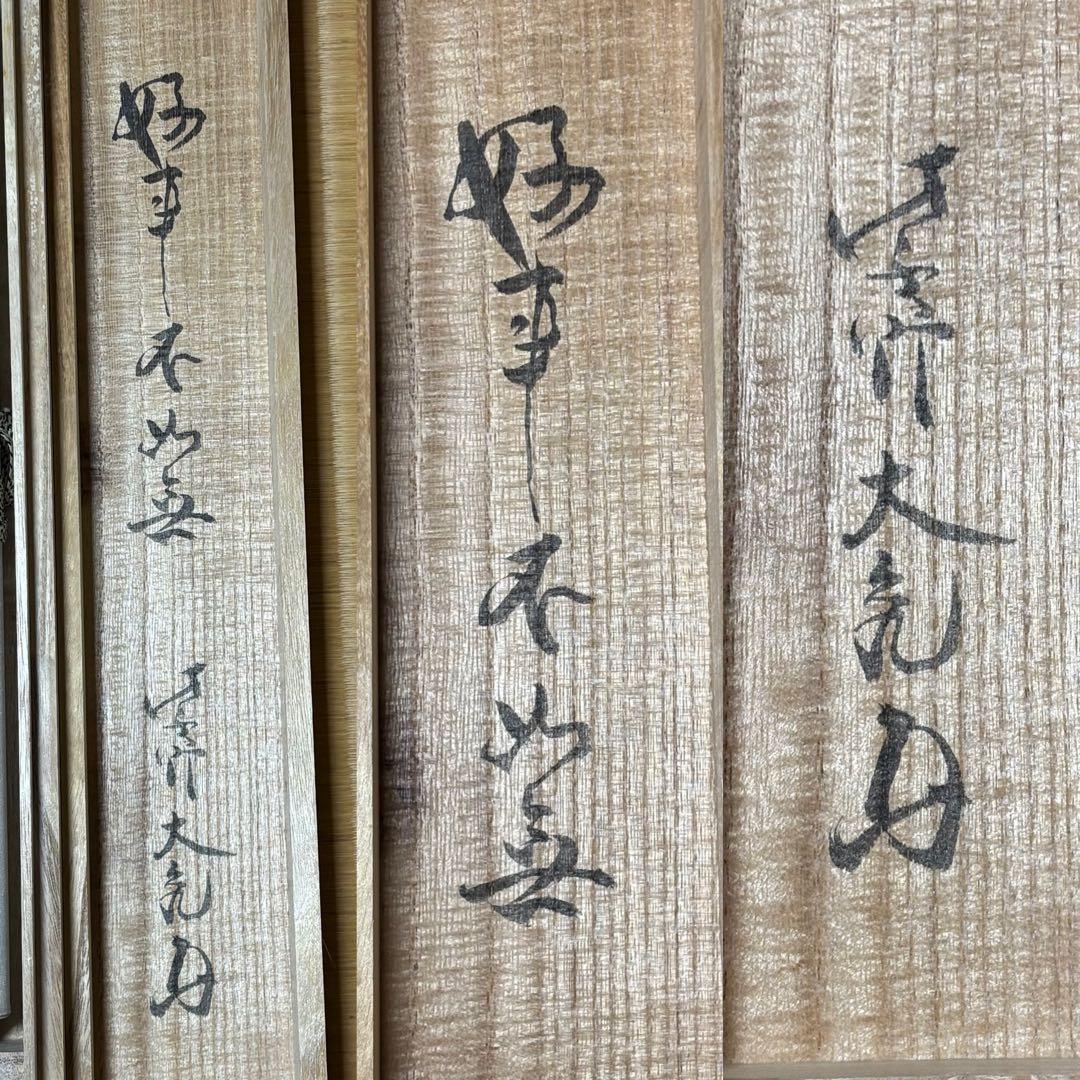 好事不如無 紫野 大亀
好事不如無
紫野 大亀